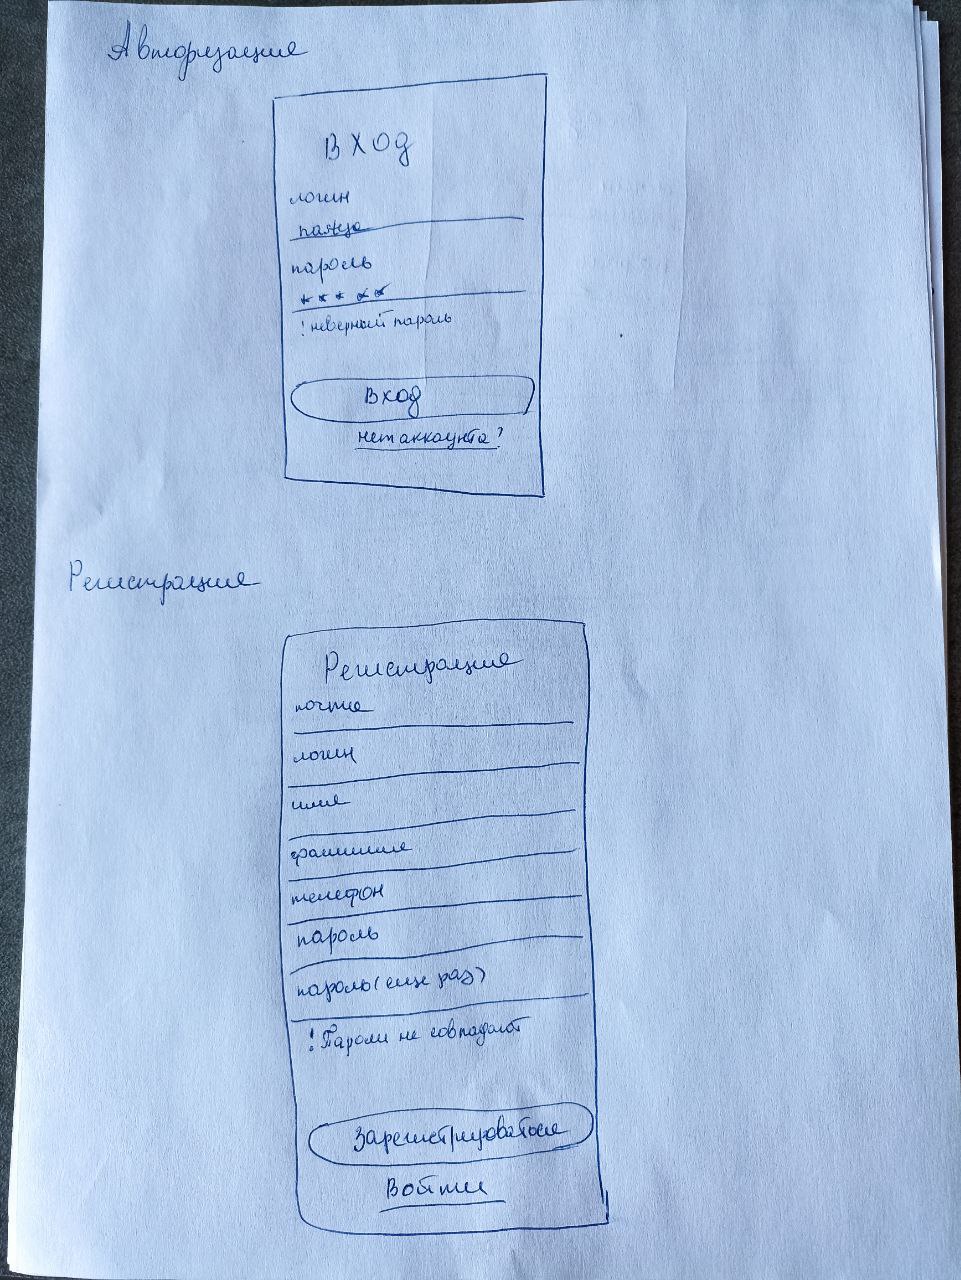 Авторизация
Вход
логин
пароль
*****
! неверный пароль
Вход
нет аккаунта?
Регистрация
Регистрация
почта
логин
имя
фамилия
телефон
пароль
пароль (еще раз)
! Пароли не совпадают
Зарегистрироваться
Войти